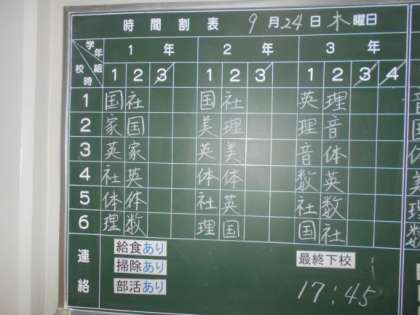 時間割表 9月24日木曜日
学年 組 校時 1年 2年 3年
1 2 3 1 2 3 1 2 3 4
1 国 社 国 社 英 理
2 家 国 美 理 理 音
3 英 家 英 美 音 体
4 社 英 体 体 数 英
5 体 体 社 英 社 数
6 理 数 理 国 国 社
連絡 給食あり
掃除あり 最終下校
部活あり 17:45